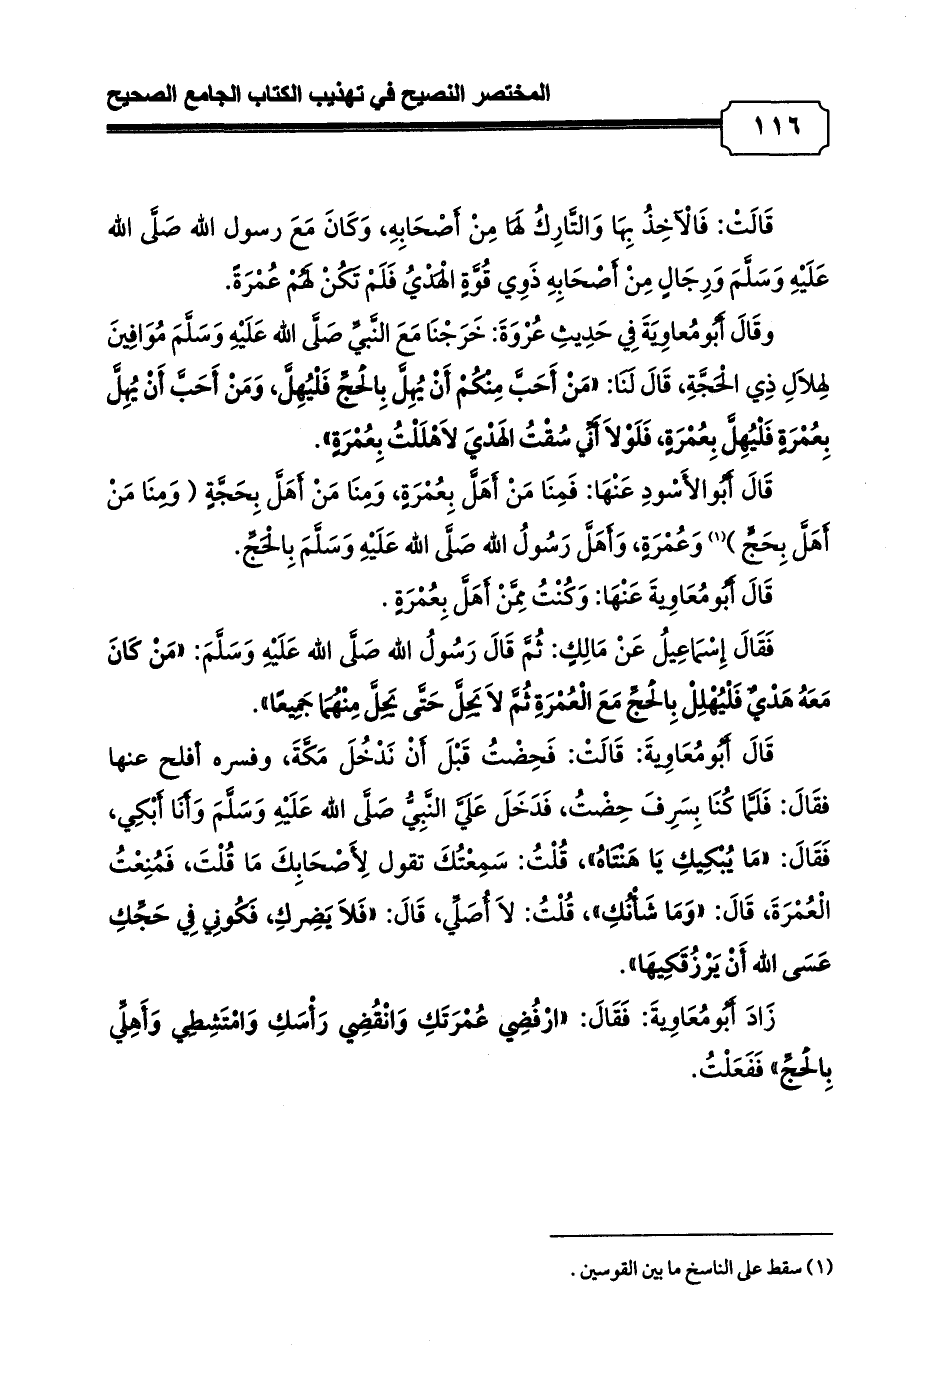 المختصر النصيح في تهذيب الكتاب الجامع الصحيح
١١٦
قَالَتْ: فَالْآخِذُ بِهَا وَالتَّارِكُ لَهَا مِنْ أَصْحَابِهِ، وَكَانَ مَعَ رسول الله صَلَّى الله
عَلَيْهِ وَسَلَّمَ وَرِجَالٍ مِنْ أَصْحَابِهِ ذَوِي قُوَّةٍ الْهَدْيُ فَلَمْ تَكُنْ لَهُمْ عُمْرَةً.
وقَالَ أَبُومُعاوِيَةَ فِي حَدِيثِ عُرْوَةَ: خَرَجْنَا مَعَ النَّبِيِّ صَلَّى الله عَلَيْهِ وَسَلَّمَ مُوَافِينَ
لِهِلاَلِ ذِي الْحَجَّةِ، قَالَ لَنَا: «مَنْ أَحَبَّ مِنْكُمْ أَنْ يُهِلَّ بِالْحَجِّ فَلْيُهِلَّ، وَمَنْ أَحَبَّ أَنْ يُهِلَّ
بِعُمْرَةٍ فَلْيُهِلَّ بِعُمْرَةٍ، فَلَوْلاَ أَنِّي سُقْتُ الهَدْيَ لاَهْلَلْتُ بِعُمْرَةٍ».
قَالَ أَبُوالأَسْودِ عَنْهَا: فَمِنَا مَنْ أَهَلَّ بِعُمْرَةٍ، وَمِنَا مَنْ أَهَلَّ بِحَجَّةٍ ( وَمِنَا مَنْ
أَهَلَّ بِحَجٍّ )(١) وَعُمْرَةٍ، وَأَهَلَّ رَسُولُ الله صَلَّى الله عَلَيْهِ وَسَلَّمَ بِالْحَجِّ.
قَالَ أَبُومُعَاوِيةَ عَنْهَا: وَكُنْتُ مِمَّنْ أَهَلَّ بِعُمْرَةٍ .
فَقَالَ إِسْمَاعِيلُ عَنْ مَالِكٍ: ثُمَّ قَالَ رَسُولُ الله صَلَّى الله عَلَيْهِ وَسَلَّمَ: «مَنْ كَانَ
مَعَهُ هَدْيٌ فَلْيُهْلِلْ بِالْحَجِّ مَعَ الْعُمْرَةِ ثُمَّ لاَ يَحِلَّ حَتَّى يَحِلَّ مِنْهُمَا جَمِيعًا».
قَالَ أَبُومُعَاوِيةَ: قَالَتْ: فَحِضْتُ قَبْلَ أَنْ نَدْخُلَ مَكَّةَ، وفسره أفلح عنها
فقَالَ: فَلَمَّا كُنَا بِسَرِفَ حِضْتُ، فَدَخَلَ عَلَيَّ النَّبِيُّ صَلَّى الله عَلَيْهِ وَسَلَّمَ وَأَنَا أَبْكِي،
فَقَالَ: «مَا يُبْكِيكِ يَا هَنْتَاهُ»، قُلْتُ: سَمِعْتُكَ تقول لِأَصْحَابِكَ مَا قُلْتَ، فَمُنِعْتُ
الْعُمْرَةَ، قَالَ: «وَمَا شَأْنُكِ»، قُلْتُ: لاَ أُصَلِّي، قَالَ: «فَلاَ يَضِركِ، فَكُونِي فِي حَجِّكِ
عَسَى الله أَنْ يَرْزُقَكِيهَا».
زَادَ أَبُومُعَاوِيةَ: فَقَالَ: «ارْفُضِي عُمْرَتَكِ وَانْقُضِي رَأْسَكِ وَامْتَشِطِي وَأَهِلِّي
بِالْحَجِّ» فَفَعَلْتُ.
(١) سقط على الناسخ ما بين القوسين .